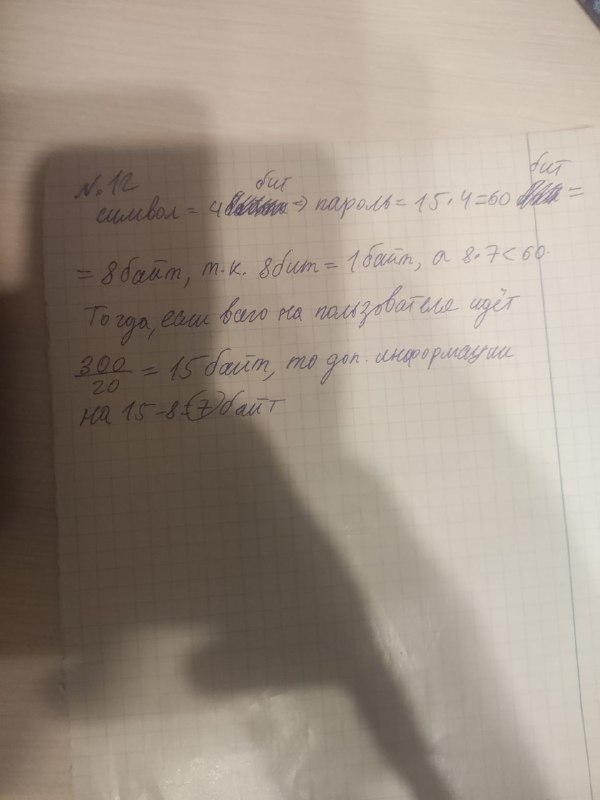 N.12
символ = 4 бит => пароль = 15·4=60 бит =
= 8 байт, т.к. 8 бит = 1 байт, а 8·7<60.
Тогда, если всего на пользователя идёт
300/20 = 15 байт, то доп. информации
на 15-8=7 байт